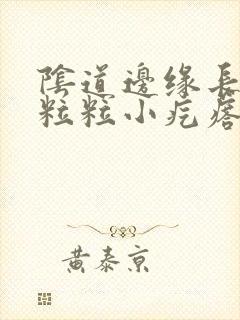 陰道邊緣長
粒粒小疙瘩
黃泰京